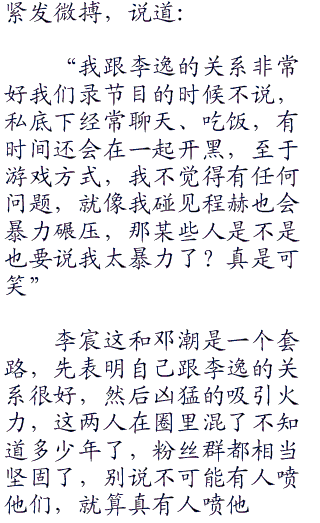 紧发微搏，说道：
“我跟李逸的关系非常
好我们录节目的时候不说，
私底下经常聊天、吃饭，有
时间还会在一起开黑，至于
游戏方式，我不觉得有任何
问题，就像我碰见程赫也会
暴力碾压，那某些人是不是
也要说我太暴力了？真是可
笑”
李宸这和邓潮是一个套
路，先表明自己跟李逸的关
系很好，然后凶猛的吸引火
力，这两人在圈里混了不知
道多少年了，粉丝群都相当
坚固了，别说不可能有人喷
他们，就算真有人喷他